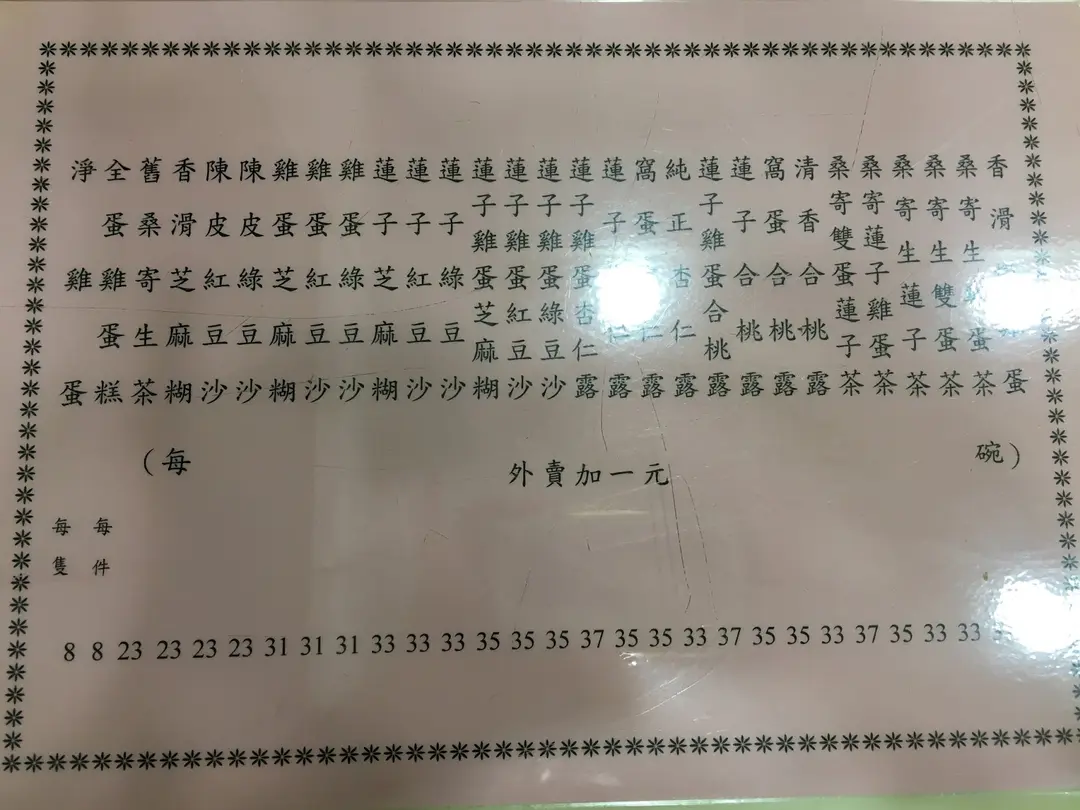 香滑蛋
桑寄生蛋茶
桑寄生雙蛋茶 33
桑寄生蓮子茶 33
桑寄蓮子雞蛋茶 35
桑寄雙蛋蓮子茶 37
清香合桃露 33
窩蛋合桃露 35
蓮子合桃露 35
蓮子雞蛋合桃露 37
純正杏仁露 33
窩蛋仁露 35
蓮子仁露 35
蓮子雞蛋杏仁露 37
蓮子雞蛋綠豆沙 35
蓮子雞蛋紅豆沙 35
蓮子雞蛋芝麻糊 35
蓮子綠豆沙 33
蓮子紅豆沙 33
蓮子芝麻糊 33
雞蛋綠豆沙 31
雞蛋紅豆沙 31
雞蛋芝麻糊 31
陳皮綠豆沙 23
陳皮紅豆沙 23
香滑芝麻糊 23
舊桑寄生茶 23
全蛋雞蛋糕 每件 8
淨雞蛋 每隻 8
(每碗)
外賣加一元